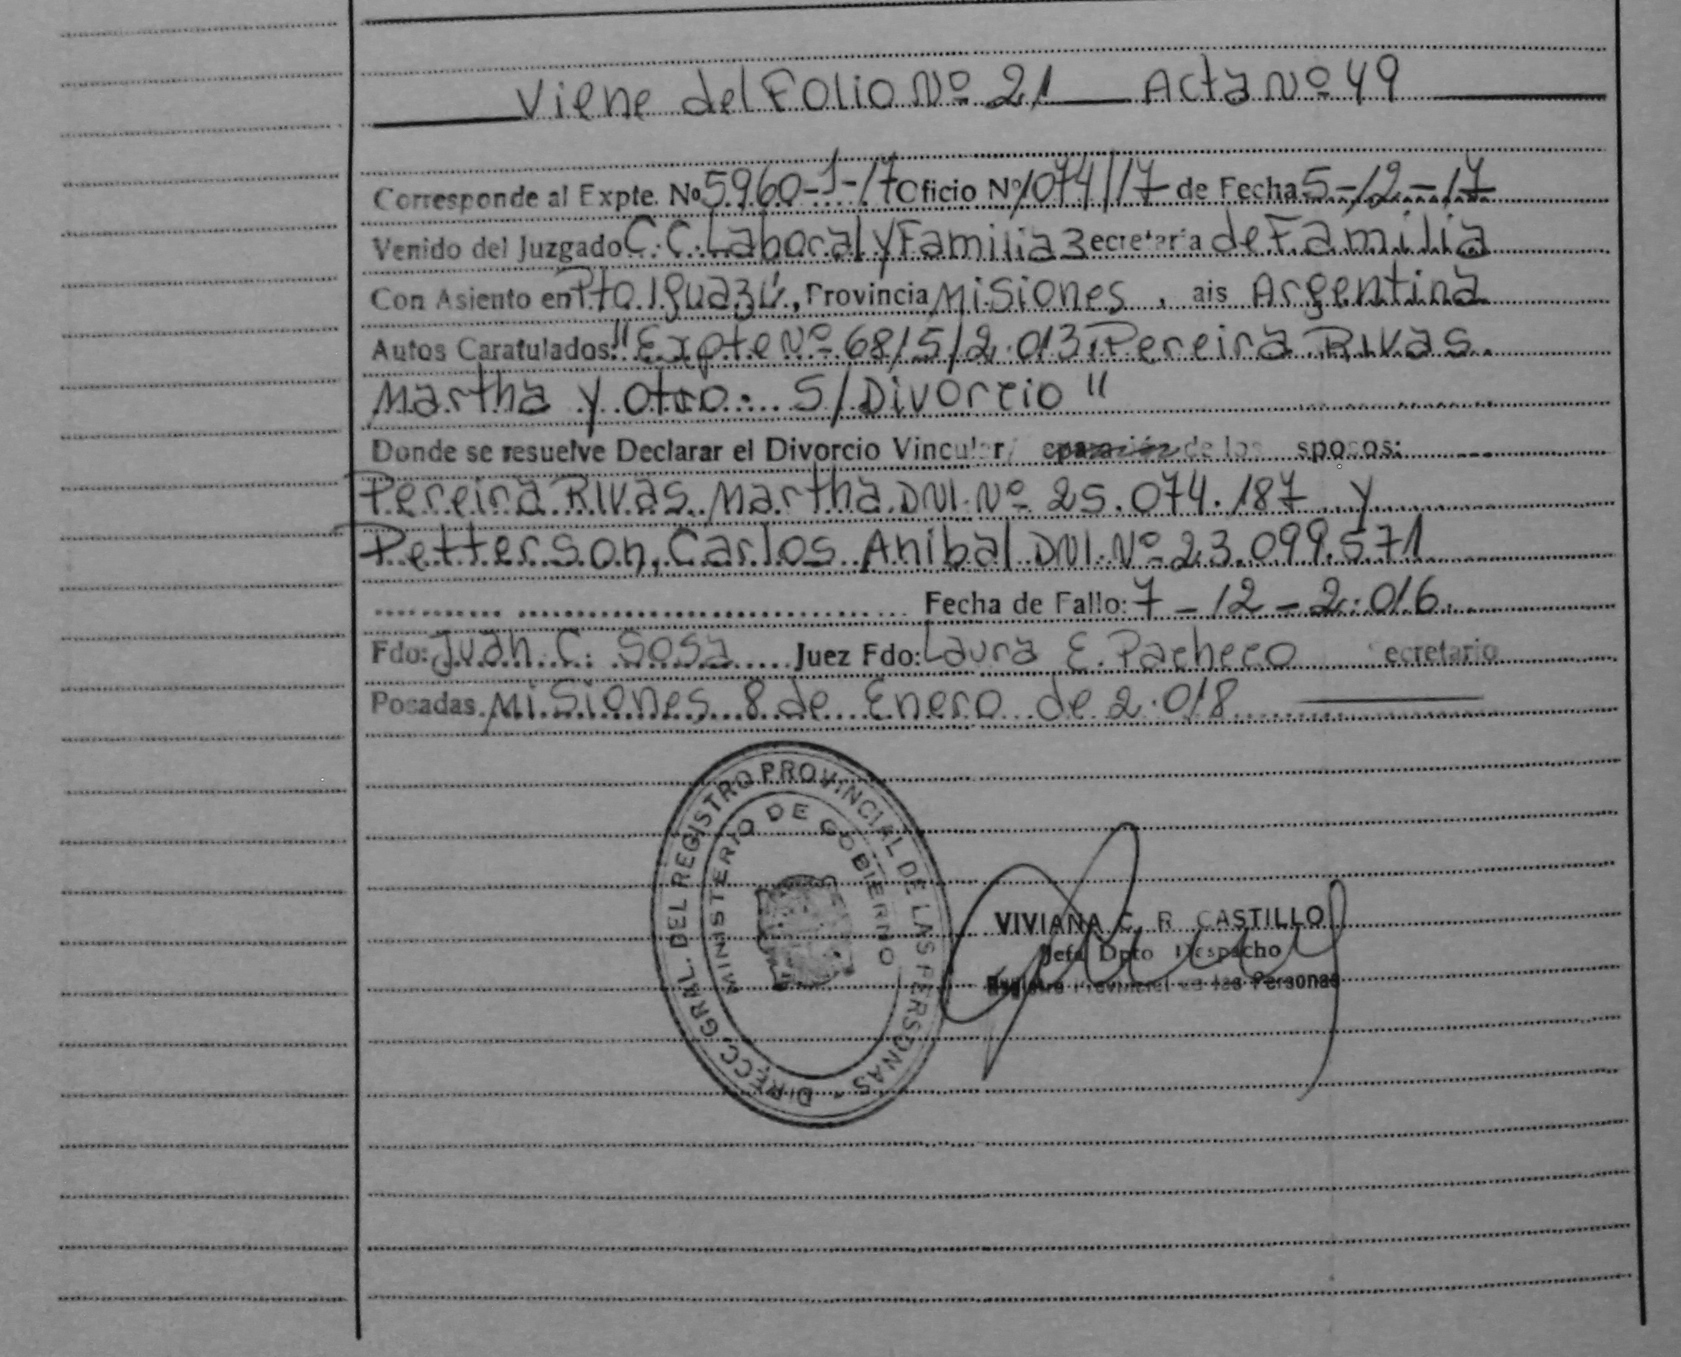 Viene del Folio Nº 21 Acta Nº 49
Corresponde al Expte. Nº 5960-J-17 Oficio Nº 1074/17 de Fecha 5-12-17
Venido del Juzgado C.C. Laboral y Familia Secretaria de Familia
Con Asiento en Pto Iguazú, Provincia Misiones, ais Argentina
Autos Caratulados: "Expte Nº 6815/2.013 Pereira Rivas
Martha y Otro. S/Divorcio"
Donde se resuelve Declarar el Divorcio Vincular de los sposos:
Pereira Rivas Martha DNI. Nº 25.074.187 y
Petterson, Carlos Anibal DNI. Nº 23.099.571
Fecha de Fallo: 7-12-2.016
Fdo: Juan C. Sosa Juez Fdo: Laura E. Pacheco ecretario
Posadas, Misiones 8 de Enero de 2.018
DIRECC. GRAL. DEL REGISTRO PROVINCIAL DE LAS PERSONAS
MINISTERIO DE GOBIERNO
VIVIANA C. R. CASTILLO
Jefa Dpto Despacho
Registro Provincial de las Personas